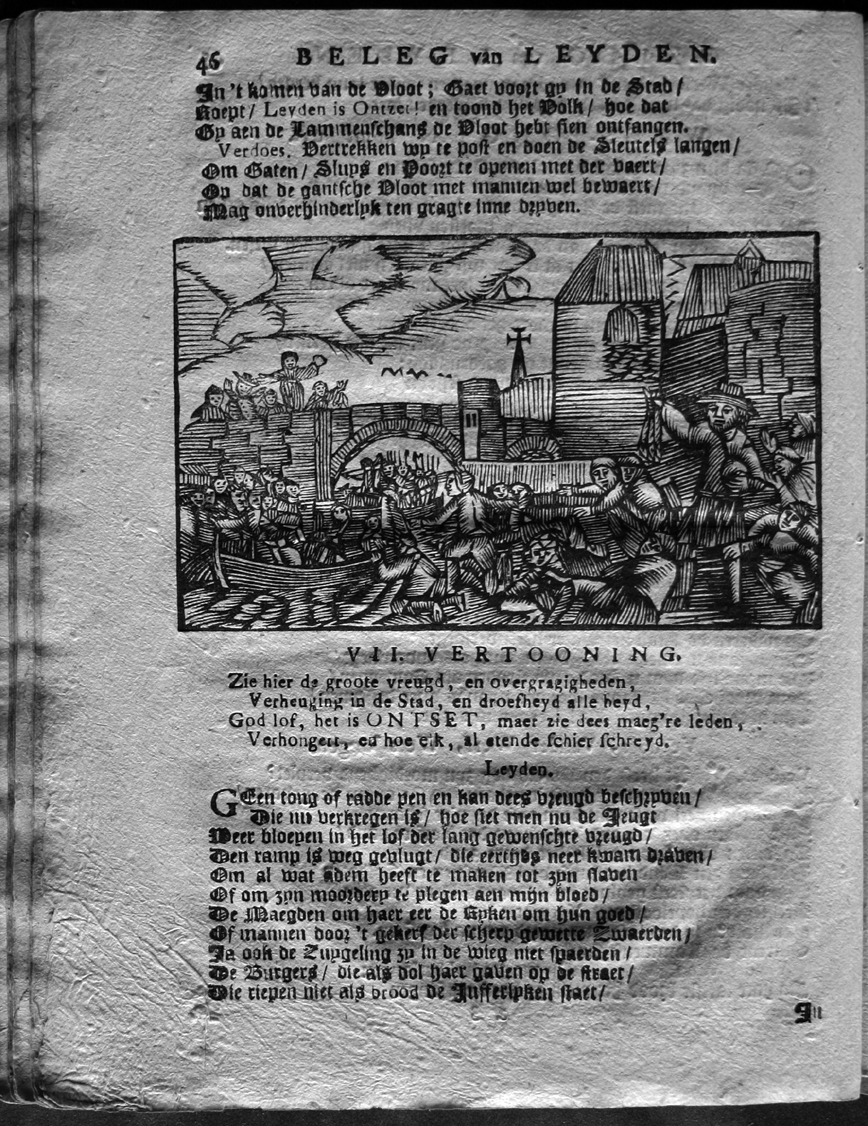 46 BELEG van LEYDEN.
In 't komen van de Vloot; Gaet voort gy in de Stad/
Roept/ Leyden is Ontzet! en toond het Volk/ hoe dat
Gy aen de Lammenschans de Vloot hebt sien ontfangen.
Verdoes. Vertrekken wy te post en doen de Sleutels langen/
Om Gaten/ Sluys en Poort te openen met der vaert/
Op dat de gantsche Vloot met mannen wel bewaert/
Mag onverhinderlyk ten gragte inne dryven.
VII. VERTOONING.
Zie hier de groote vreugd, en overgragigheden,
Verheuging in de Stad, en droefheyd alle beyd,
God lof, het is ONTSET, maer zie dees maeg're leden,
Verhongert, en hoe elk, al etende schier schreyd.
Leyden.
GEen tong of radde pen en kan dees vreugd beschryven/
Die nu verkregen is/ hoe siet men nu de Jeugt
Weer bloeyen in het lof der lang gewenschte vreugd/
Den ramp is weg gevlugt/ die eertyds neer kwam draven/
Om al wat adem heeft te maken tot zyn slaven
Of om zyn moordery te plegen aen mijn bloed/
De Maegden om haer eer de Ryken om hun goed/
Of mannen door 't gekerf der scherp gewette Zwaerden/
Ja ook de Zuygeling zy in de wieg niet spaerden/
De Burgers/ die als dol haer gaven op de straet/
Die riepen niet als brood de Jufferlyken staet/
In